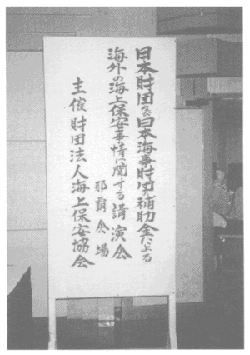 日本財団及び日本海事財団の補助金による
海外の海上保安事情に関する講演会
那覇会場
主催 財団法人海上保安協会